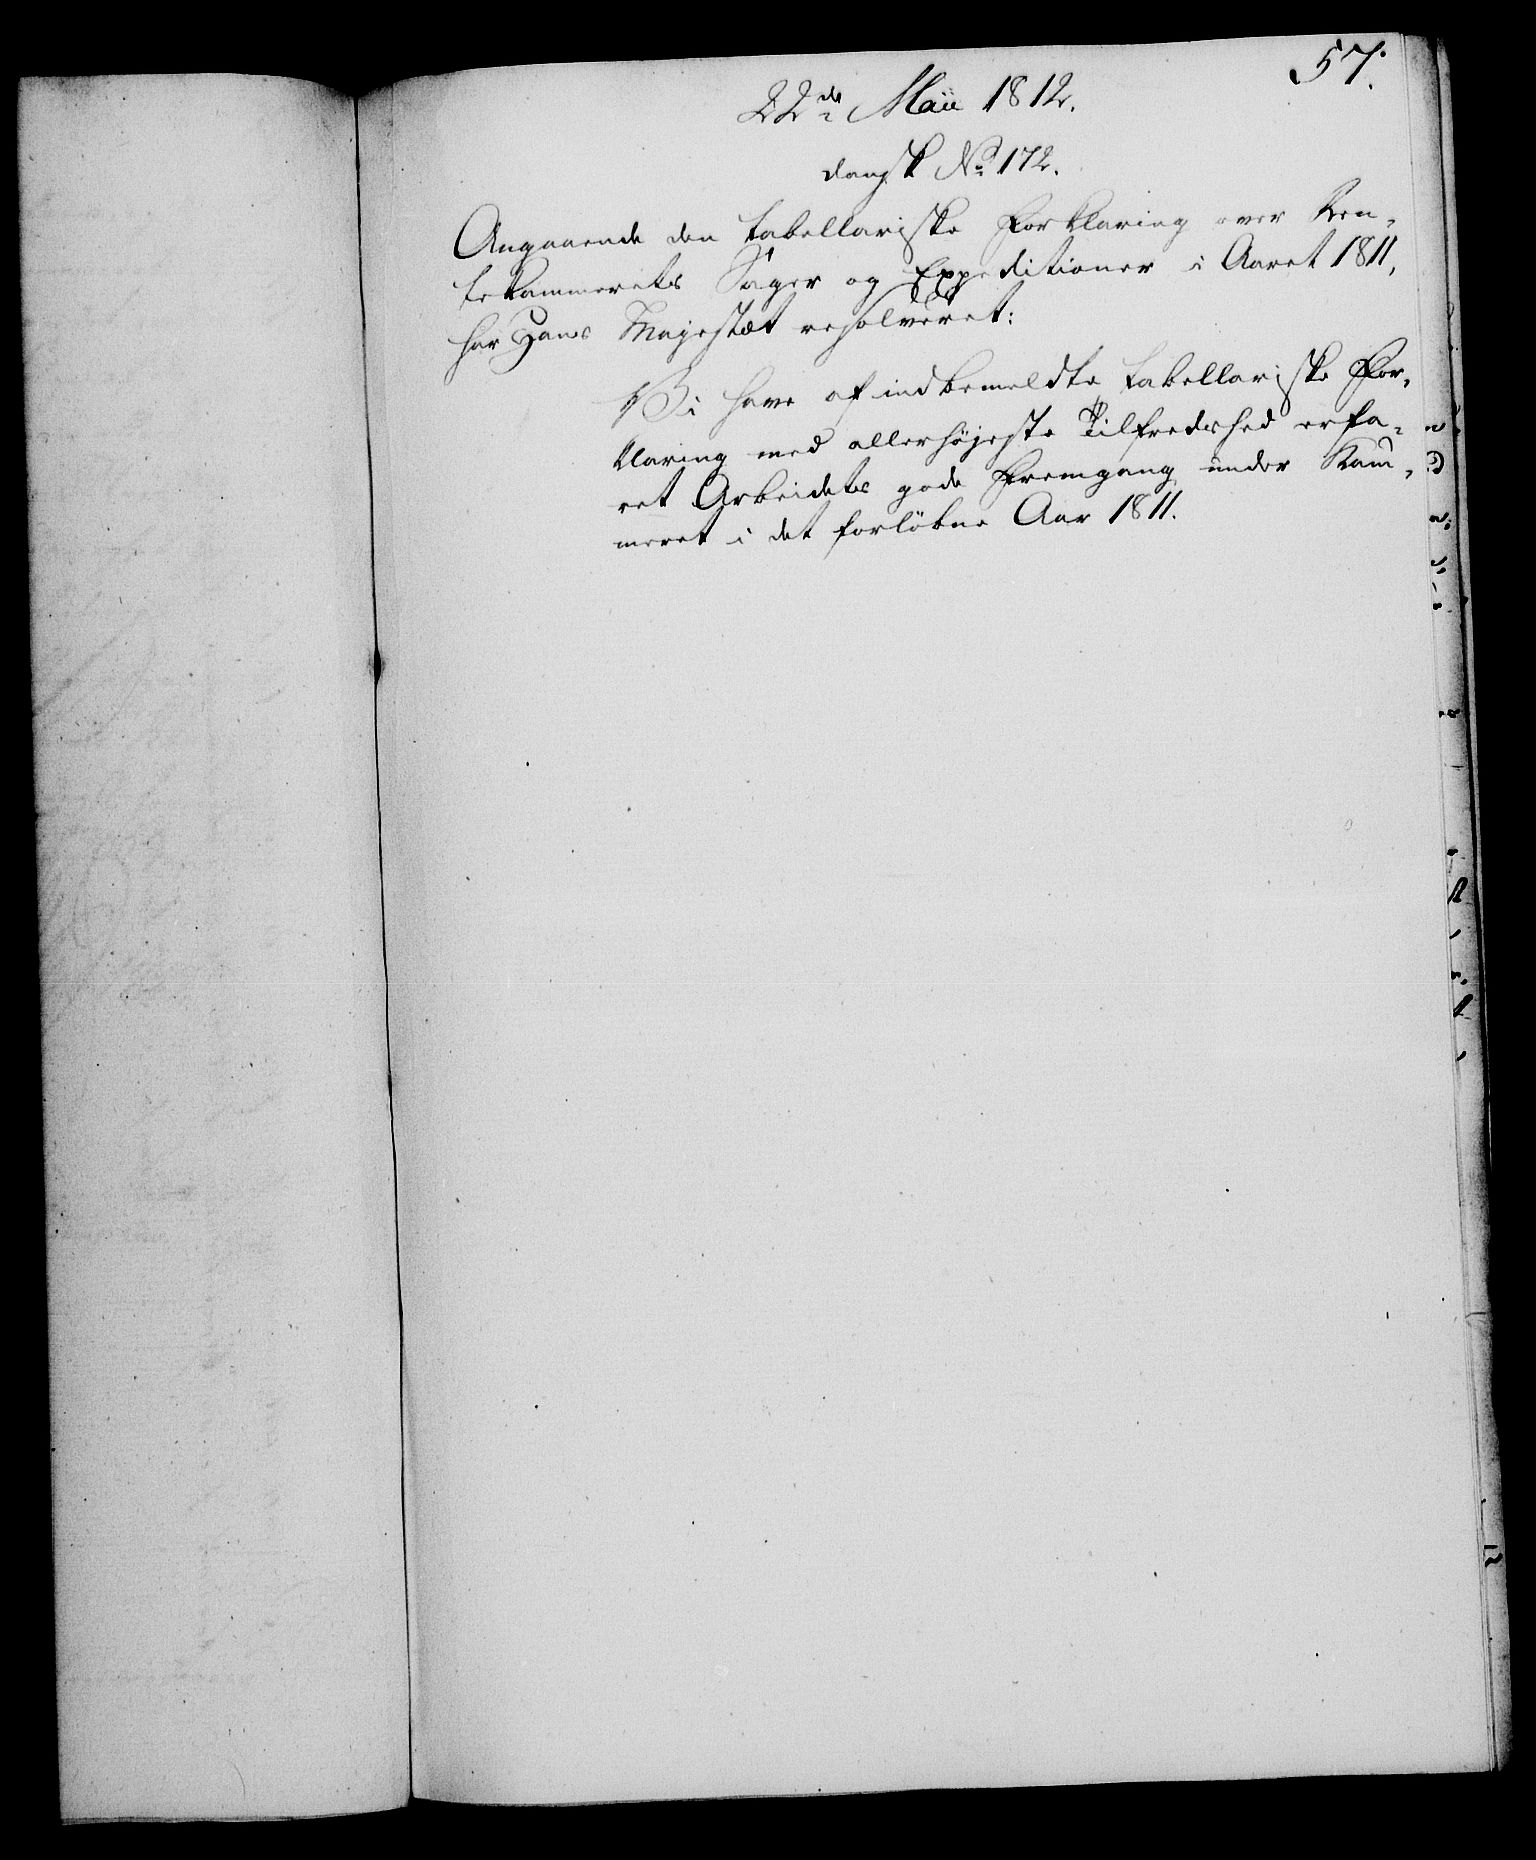 57.
22de Maii 1812.
dansk No 172.
Angaaende den tabellariske Forklaring over Ren-
tekammerets Sager og Expeditioner i Aaret 1811,
har Hans Majestæt resolveret:
Vi have af indbemeldte tabellariske For-
klaring med allerhøjeste Tilfredshed erfa-
ret Arbeidets gode Fremgang under Kam-
meret i det forløbne Aar 1811.